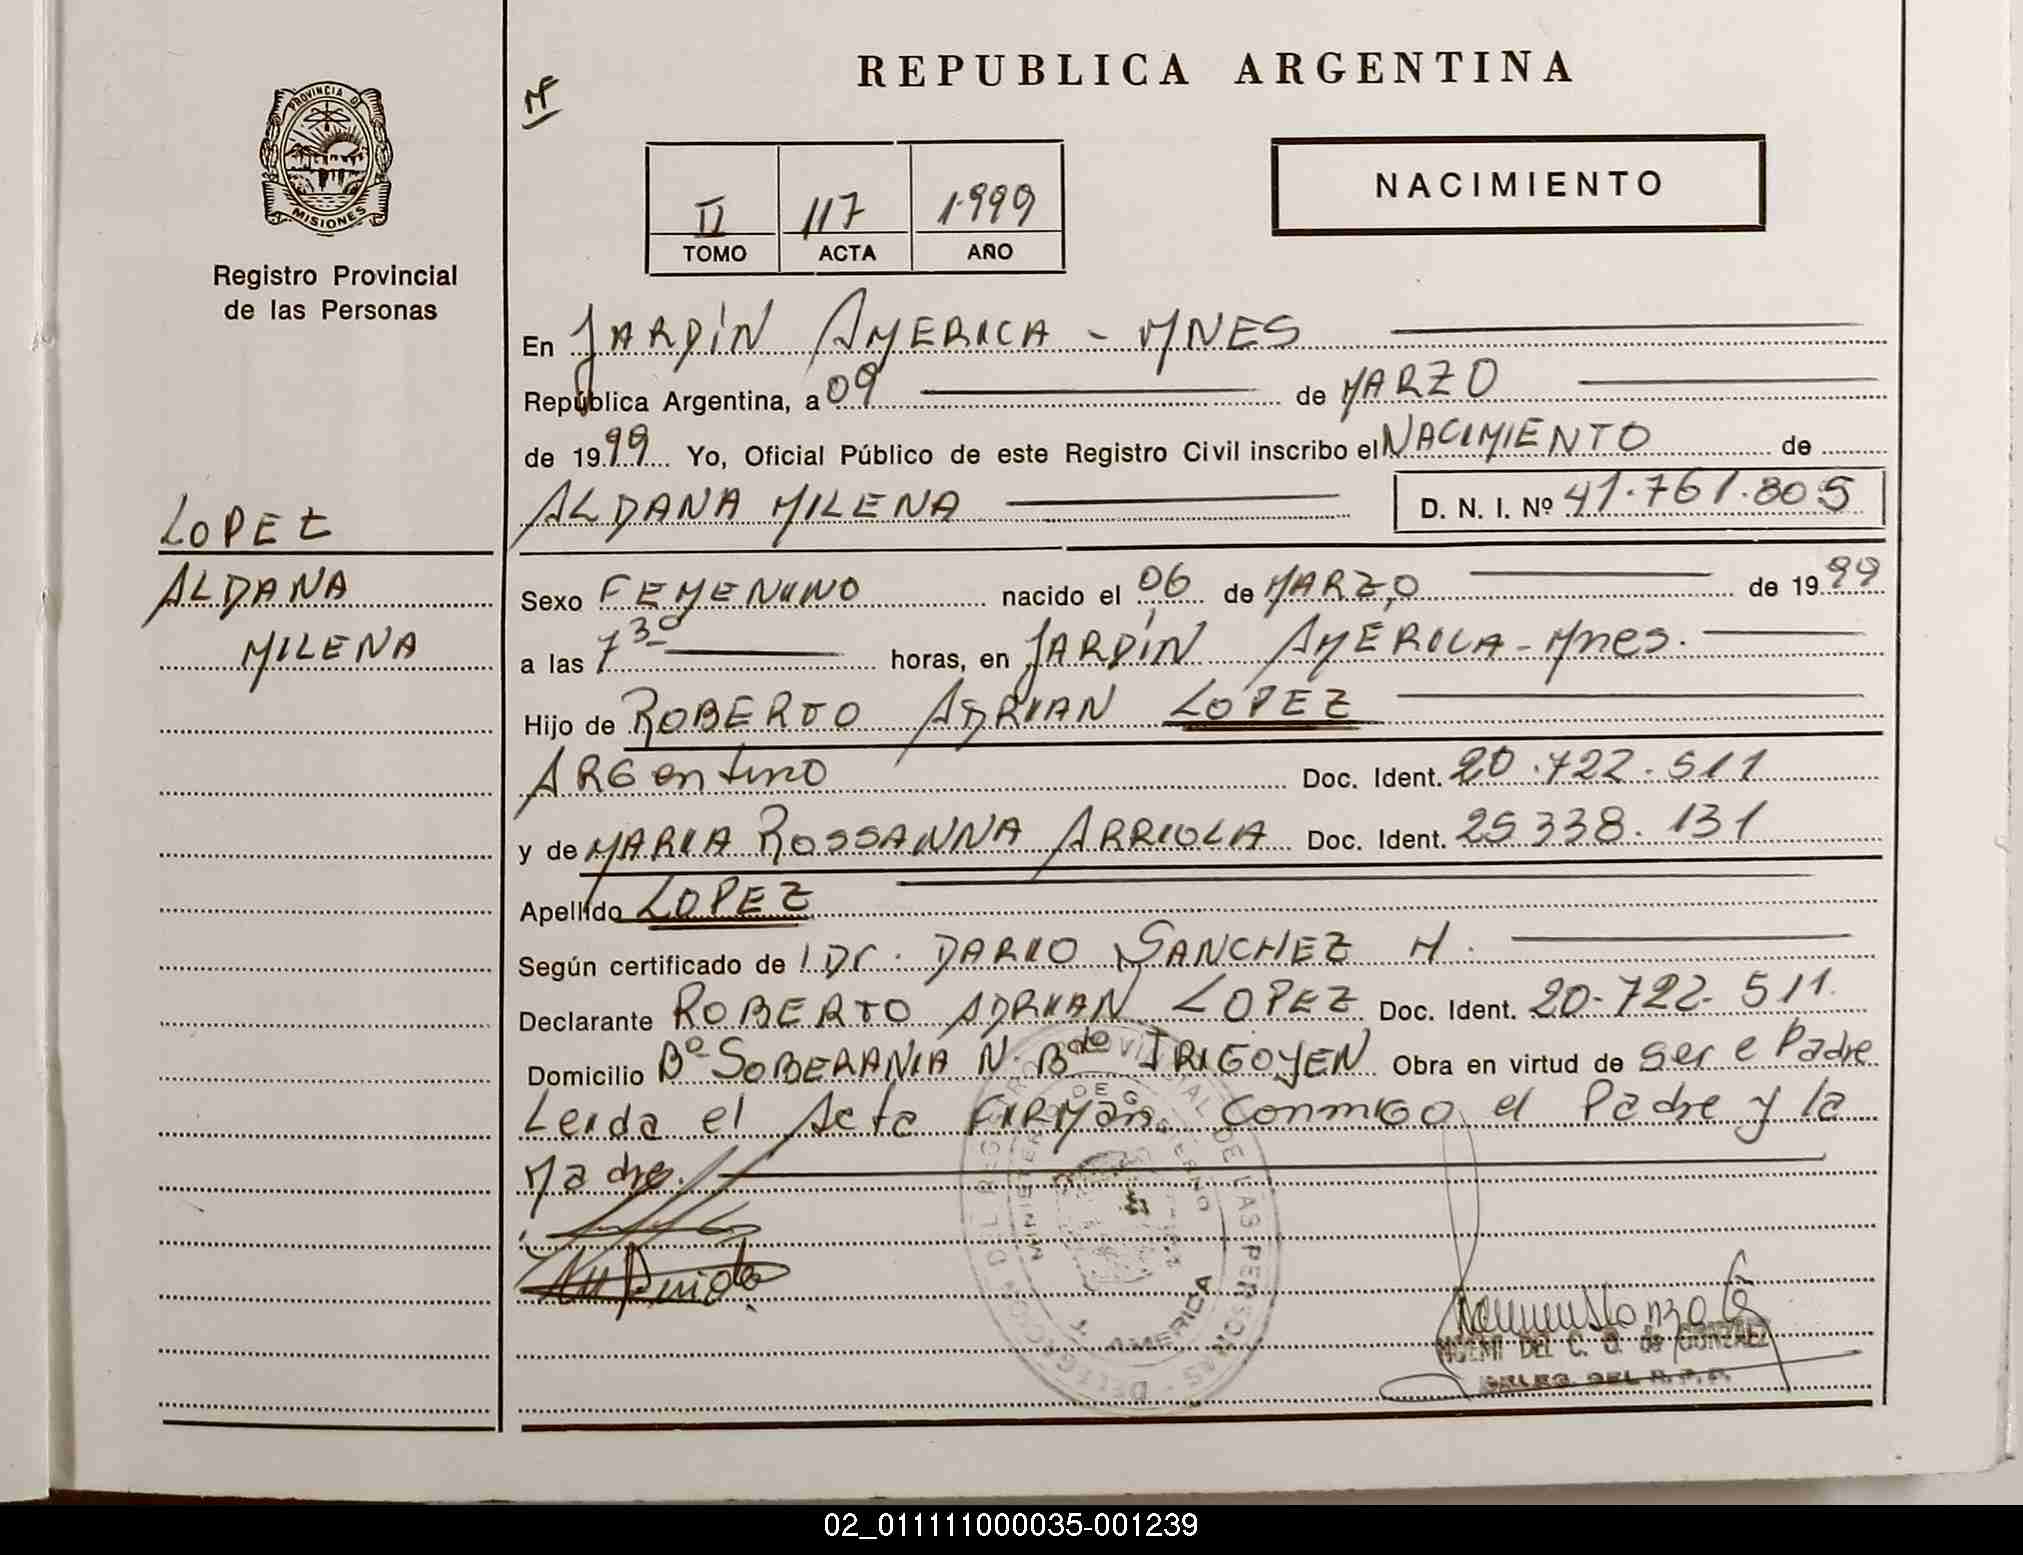 REPUBLICA ARGENTINA
PROVINCIA D
MISIONES
Registro Provincial
de las Personas
II 117 1999
TOMO ACTA AÑO
NACIMIENTO
En JARDÍN AMERICA - MNES
República Argentina, a 09 de MARZO
de 1999 Yo, Oficial Público de este Registro Civil inscribo el NACIMIENTO de
ALDANA MILENA D. N. I. Nº 41.761.805
LOPEZ
ALDANA
MILENA
Sexo FEMENINO nacido el 06 de MARZO de 1999
a las 7 30 horas, en JARDÍN AMERICA - Mnes.
Hijo de ROBERTO ADRIAN LOPEZ
ARGentino Doc. Ident. 20.722.511
y de MARIA ROSSANNA ARRIOLA Doc. Ident. 25 338.131
Apellido LOPEZ
Según certificado de Dr. DARIO SANCHEZ M.
Declarante ROBERTO ADRIAN LOPEZ Doc. Ident. 20-722-511.
Domicilio Bº SOBERANIA N. Bdo IRIGOYEN Obra en virtud de ser e Padre
Leida el Acta FIRMAN conmigo el Padre y la
Madre.
J. AMERICA
DEL C. B. de GONZALEZ
DELEG. DEL R.P.P.
02_011111000035-001239